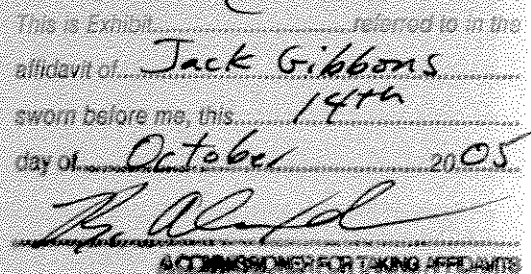 This is Exhibit.....................referred to in the
affidavit of Jack Gibbons
sworn before me, this 14th
day of October 2005
A COMMISSIONER FOR TAKING AFFIDAVITS